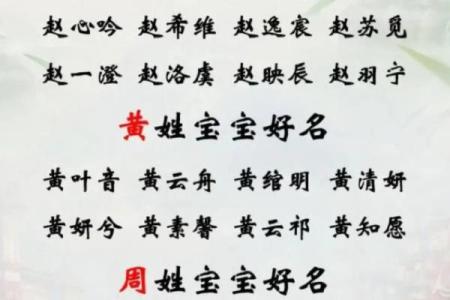 赵心吟 赵希维 赵逸宸 赵苏觅
赵一澄 赵洛虞 赵映辰 赵羽宁
黄姓宝宝好名
黄叶音 黄云舟 黄绾明 黄清妍
黄妍兮 黄素馨 黄云祁 黄知愿
周姓宝宝好名